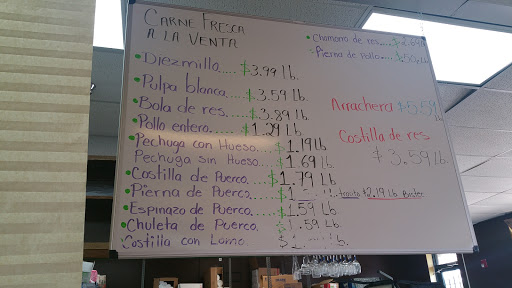 CARNE FRESCA
A LA VENTA
Diezmillo..... $3.99 lb.
Pulpa blanca..... $3.59 lb.
Bola de res..... $3.89 lb.
Pollo entero..... $1.29 lb.
Pechuga con Hueso... $1.19 lb
Pechuga sin Hueso.... $1.69 lb.
Costilla de Puerco.. $1.79 Lb
Pierna de Puerco.. $1 $2.19 Lb
Espinazo de Puerco.... $1.59 Lb
Chuleta de Puerco.. $1.59 Lb
Costilla con Lomo. lb.
Chamorro de res..
Pierna de Pollo..
Arrachera
Costilla de res
$3.59 lb.